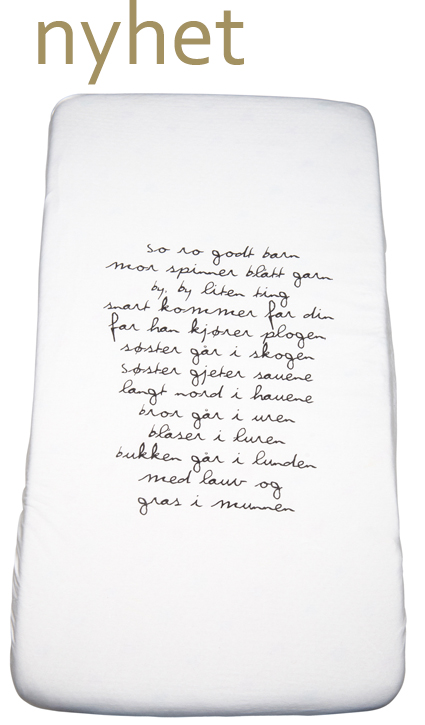 nyhet
so ro godt barn
mor spinner blått garn
by, by liten ting
snart kommer far din
far han kjører plogen
søster går i skogen
søster gjeter sauene
langt nord i hauene
bror går i uren
blåser i luren
bukken går i lunden
med lauv og
gras i munnen